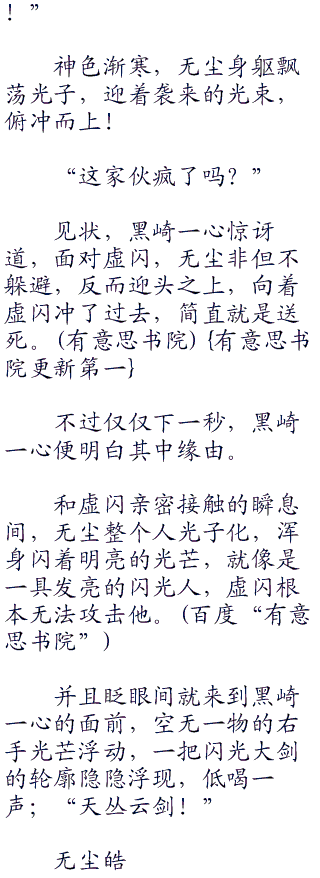 ！”
神色渐寒，无尘身躯飘
荡光子，迎着袭来的光束，
俯冲而上！
“这家伙疯了吗？”
见状，黑崎一心惊讶
道，面对虚闪，无尘非但不
躲避，反而迎头之上，向着
虚闪冲了过去，简直就是送
死。(有意思书院) {有意思书
院更新第一}
不过仅仅下一秒，黑崎
一心便明白其中缘由。
和虚闪亲密接触的瞬息
间，无尘整个人光子化，浑
身闪着明亮的光芒，就像是
一具发亮的闪光人，虚闪根
本无法攻击他。(百度“有意
思书院”)
并且眨眼间就来到黑崎
一心的面前，空无一物的右
手光芒浮动，一把闪光大剑
的轮廓隐隐浮现，低喝一
声；“天丛云剑！”
无尘皓